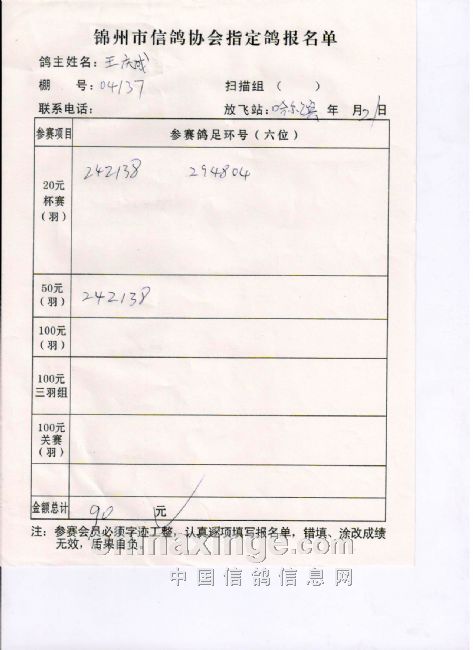 锦州市信鸽协会指定鸽报名单
鸽主姓名: 王庆成
棚 号: 04137 扫描组 ( )
联系电话: 放飞站: 哈尔滨 年 月21日
参赛项目 参赛鸽足环号(六位)
20元 杯赛 (羽) 242138 294804
50元 (羽) 242138
100元 (羽)
100元 三羽组
100元 关赛 (羽)
金额总计 90 元
注: 参赛会员必须字迹工整, 认真逐项填写报名单, 错填、涂改成绩
无效, 后果自负
chinaxinge.com
中国信鸽信息网